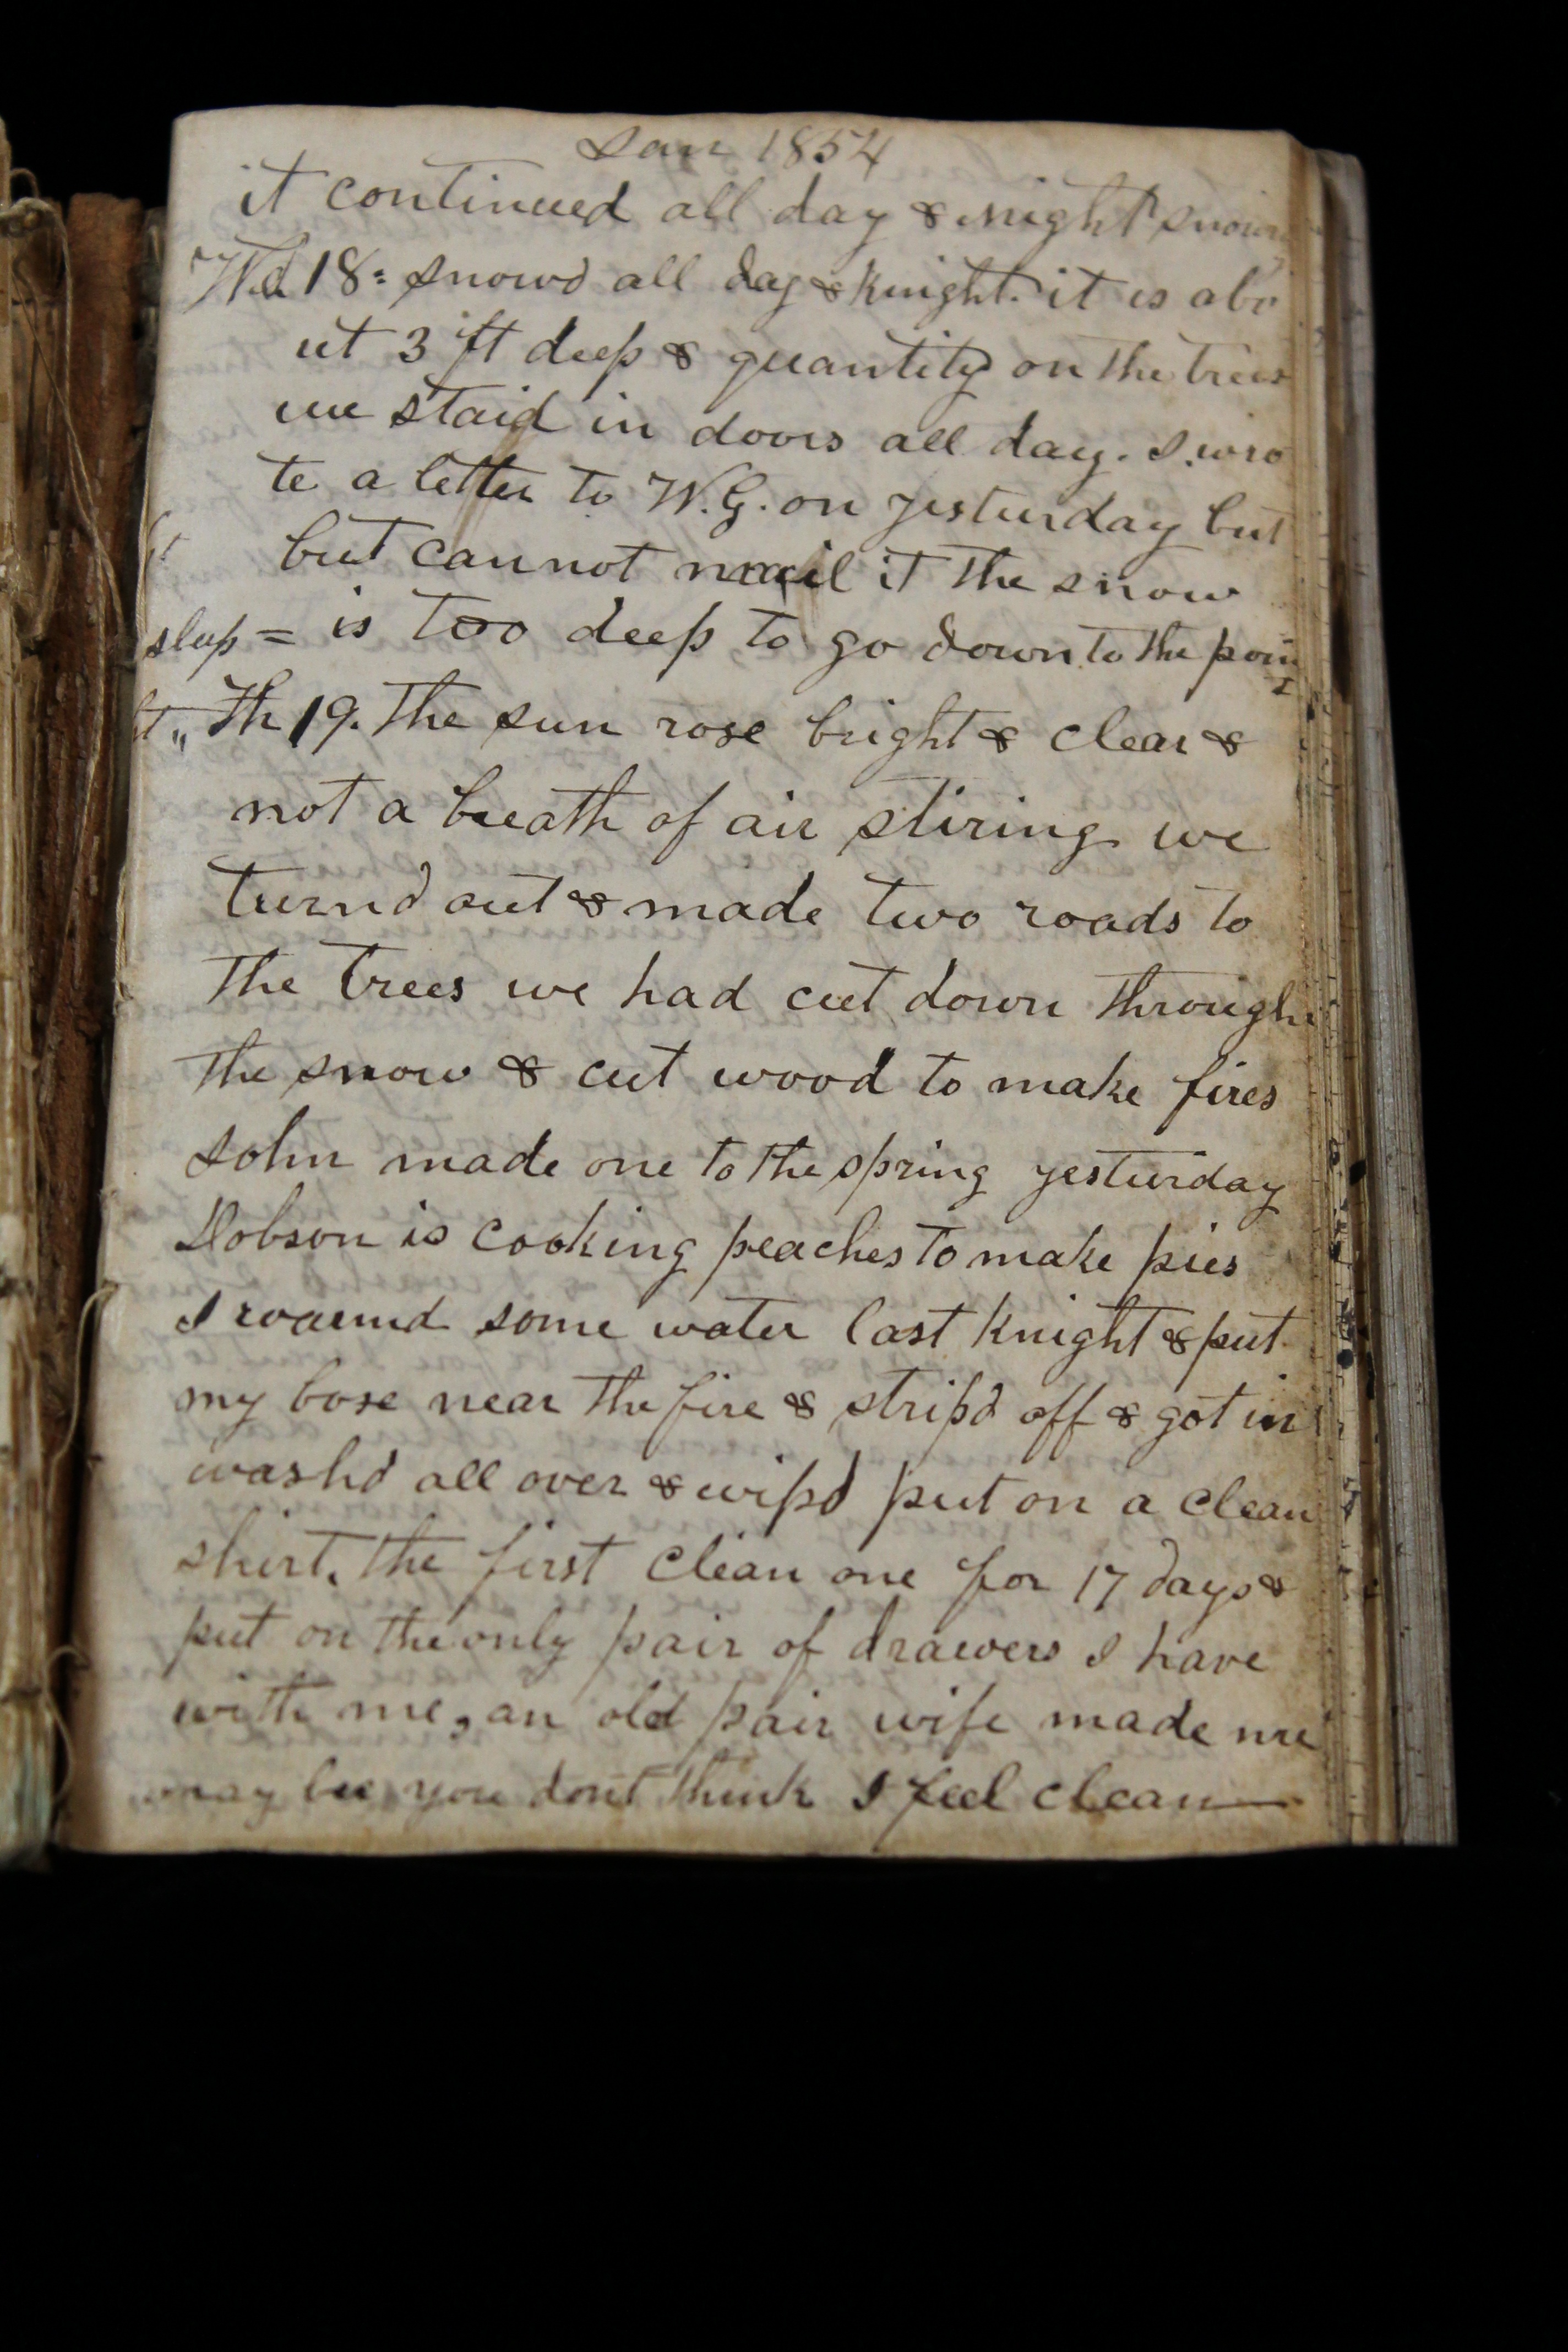 Jan 1854
it continued all day & night snowing
Wd. 18 = snowd all day & knight. it is abo
ut 3 ft deep & quantity on the trees
we staid in doors all day. I wro
te a letter to W.G. on yesturday but
but cannot mail it the snow
slep = is too deep to go down to the point
Th 19. The sun rose bright & clear &
not a breath of air stiring we
turnd out & made two roads to
the trees we had cut down through
the snow & cut wood to make fires
John made one to the spring yesturday
Dobson is cooking peaches to make pies
I waumd some water last knight & put
my boxe near the fire & stripd off & got in
washd all over & wipd put on a clean
shirt, the first clean one for 17 days &
put on the only pair of drawers I have
with me, an old pair wife made me
may be you dont think I feel clean —